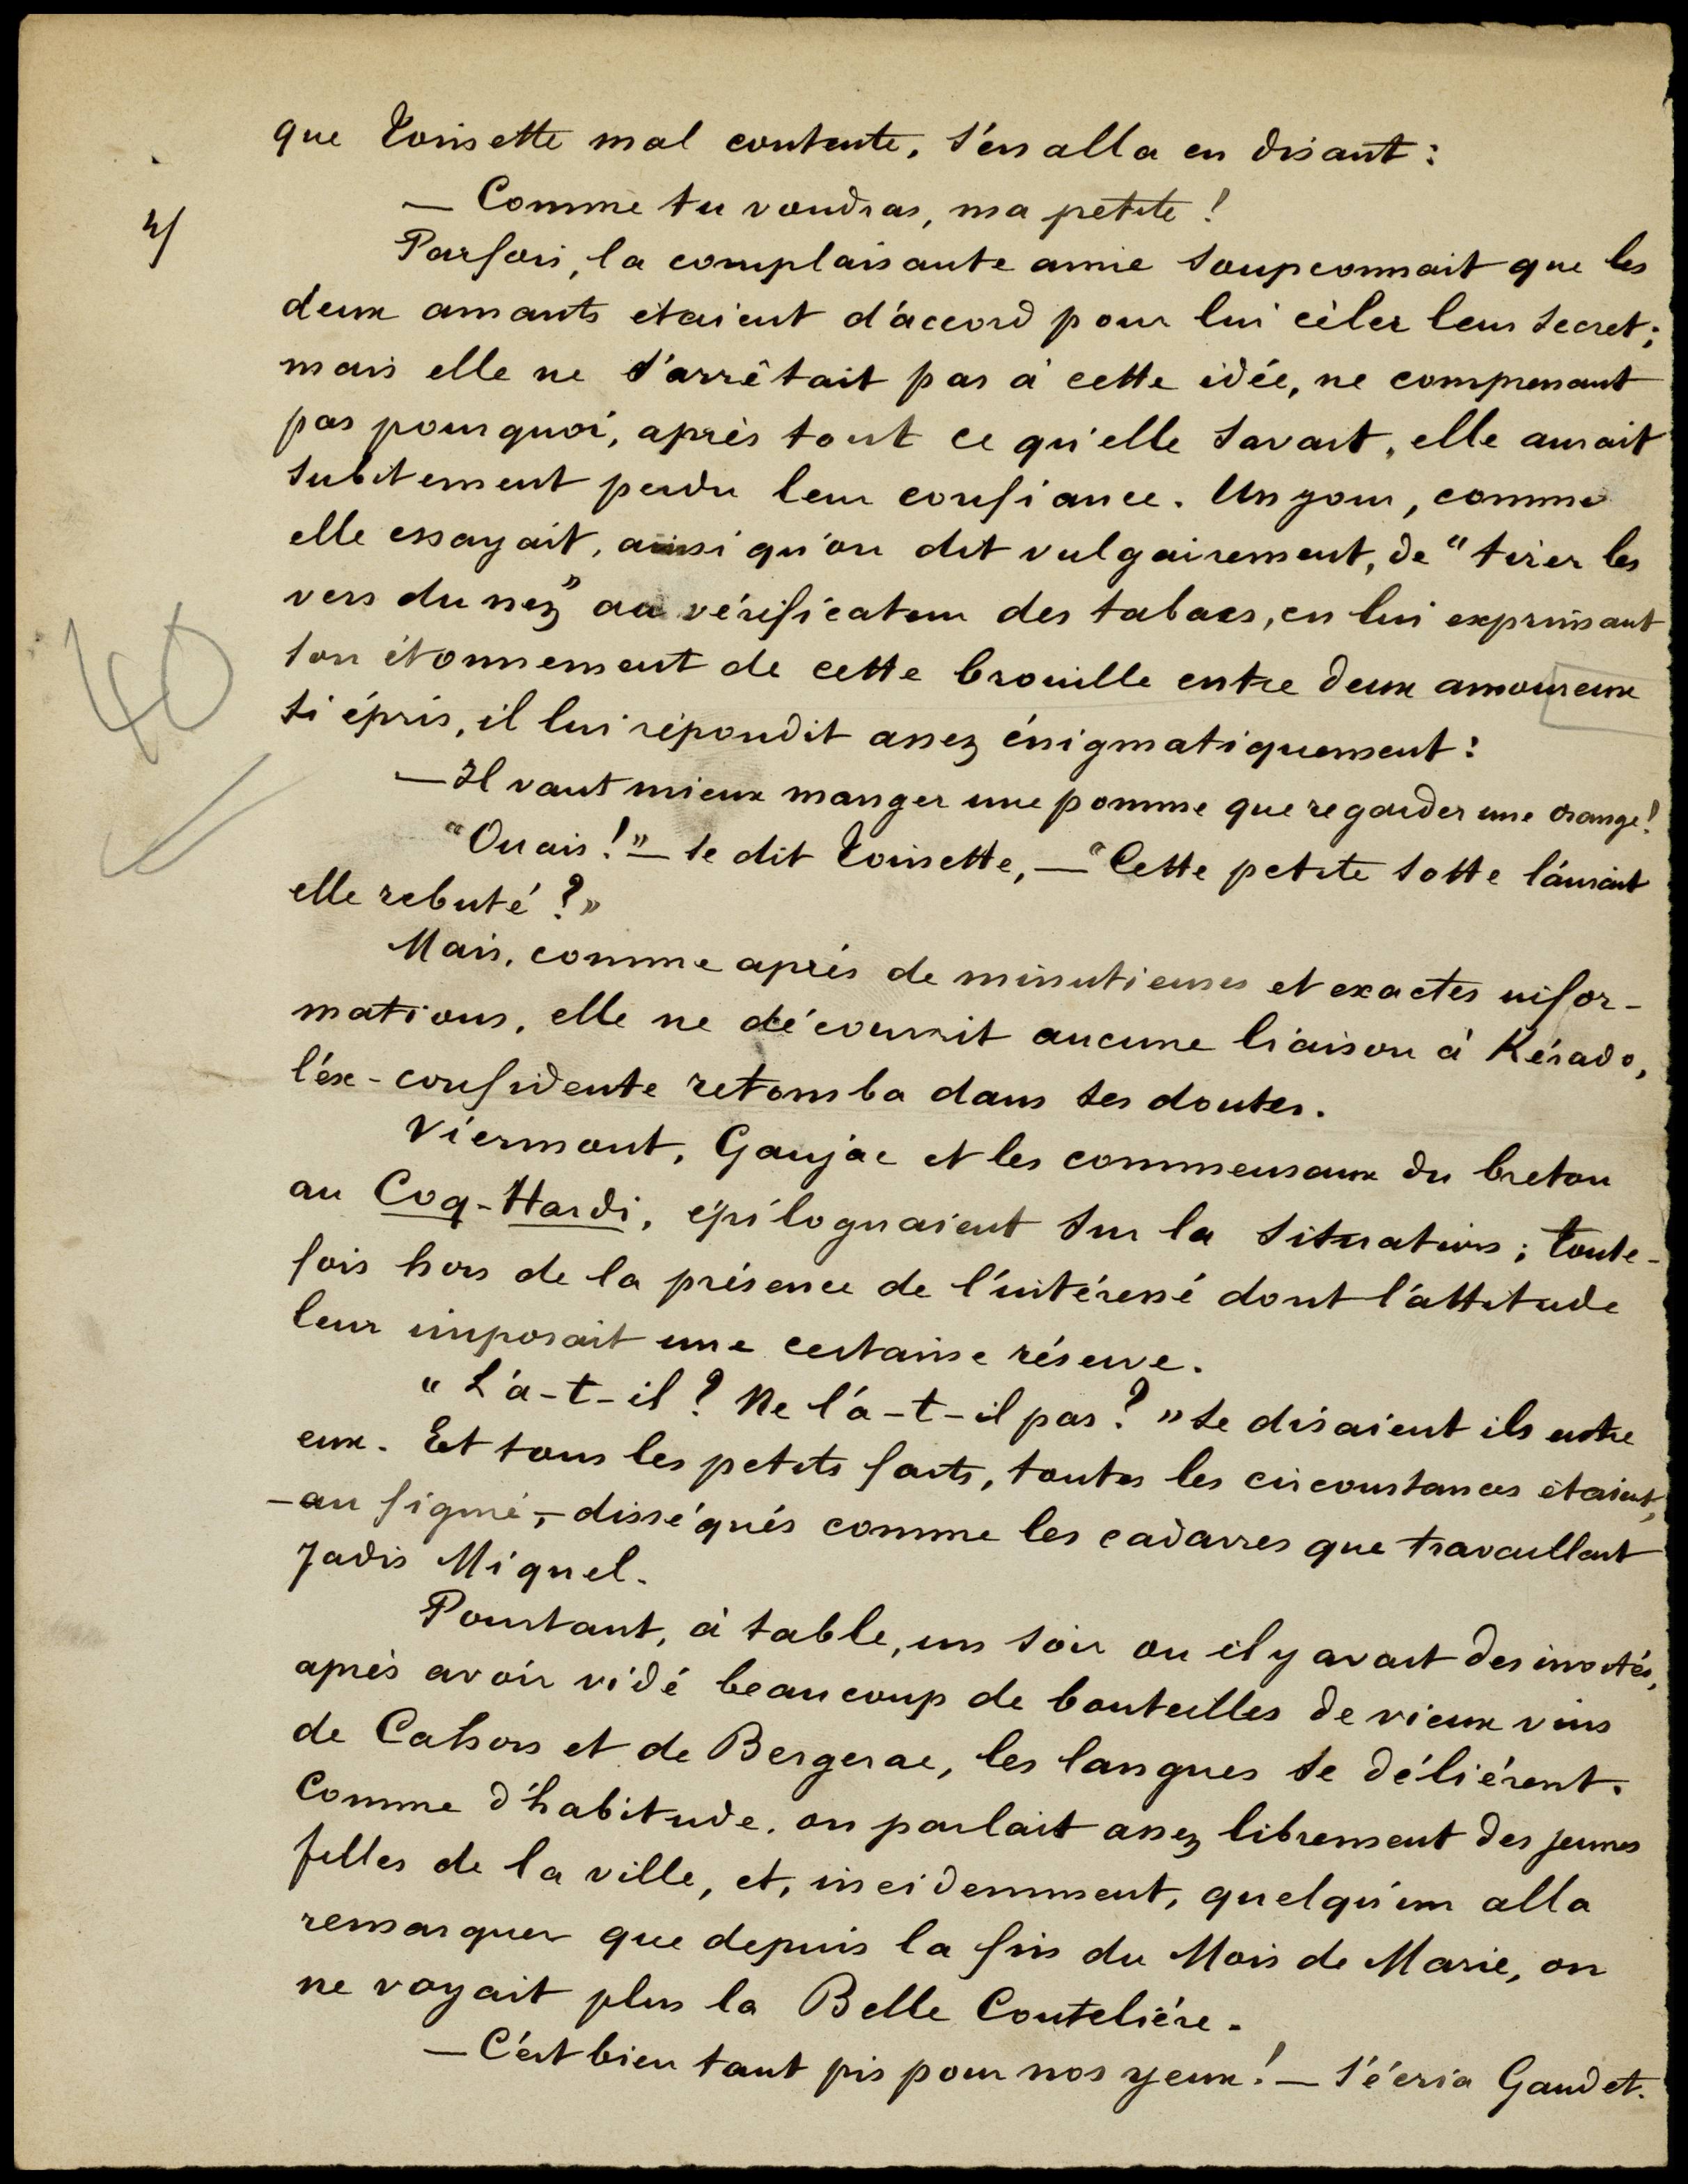 que Toinette mal contente, s'en alla en disant :
— Comme tu voudras, ma petite !
Parfois, la complaisante amie soupçonnait que les
deux amants étaient d'accord pour lui céler leur secret ;
mais elle ne s'arrêtait pas à cette idée, ne comprenant
pas pourquoi, après tout ce qu'elle savait, elle aurait
subitement perdu leur confiance. Un jour, comme
elle essayait, ainsi qu'on dit vulgairement, de "tirer les
vers du nez" au vérificateur des tabacs, en lui exprimant
son étonnement de cette brouille entre deux amoureux
si épris, il lui répondit assez énigmatiquement :
— Il vaut mieux manger une pomme que regarder une orange !
"Ouais !" — se dit Toinette, — "Cette petite sotte l'aurait
elle rebuté ?"
Mais, comme après de minutieuses et exactes infor-
mations, elle ne découvrit aucune liaison à Kérado,
l'ex-confidente retomba dans ses doutes.
Viermont, Gaujac et les commensaux du breton
au Coq-Hardi, épiloguaient sur la situation ; toute-
fois hors de la présence de l'intéressé dont l'attitude
leur imposait une certaine réserve.
"L'a-t-il ? Ne l'a-t-il pas ?" se disaient ils entre
eux. Et tous les petits faits, toutes les circonstances étaient,
— au figuré, — disséqués comme les cadavres que travaillait
jadis Miquel.
Pourtant, à table, un soir ou il y avait des invités,
après avoir vidé beaucoup de bouteilles de vieux vins
de Cahors et de Bergerac, les langues se délièrent.
Comme d'habitude, on parlait assez librement des jeunes
filles de la ville, et, incidemment, quelqu'un alla
remarquer que depuis la fin du Mois de Marie, on
ne voyait plus la Belle Coutelière.
— C'est bien tant pis pour nos yeux ! — s'écria Gaudet.
40